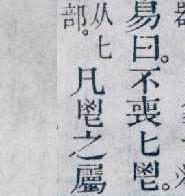 易曰。不喪匕鬯。
从匕
部。
凡鬯之屬